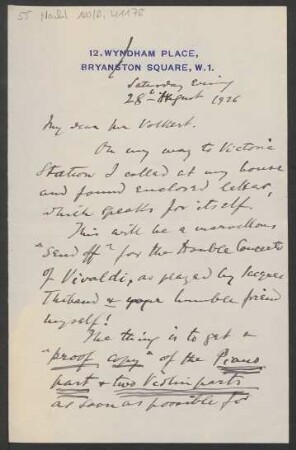 12, WYNDHAM PLACE,
BRYANSTON SQUARE, W.1.
Saturday Evening
28th August 1926
My dear Mr Volkert.
On my way to Victoria
Station I called at my house
and found enclosed letter,
which speaks for itself.
This will be a marvellous
"send off" for the Double Concerto
of Vivaldi, as played by Jacques
Thibaud & your humble friend
myself!
The thing is to get a
"proof copy" of the Piano
part & two Violin parts
as soon as possible for